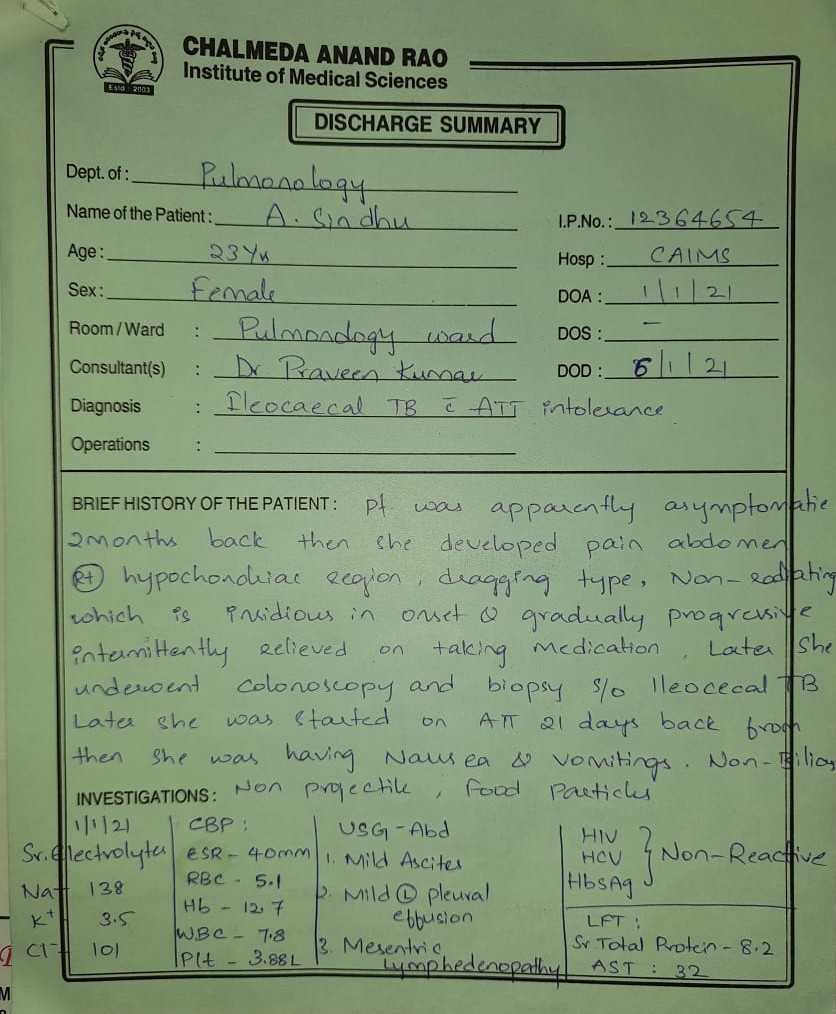 Estd : 2003
CHALMEDA ANAND RAO
Institute of Medical Sciences
DISCHARGE SUMMARY
Dept. of : Pulmonology
Name of the Patient : A. Sindhu
I.P.No. : 12364654
Age : 23Yrs
Hosp : CAIMS
Sex : Female
DOA : 1/1/21
Room / Ward : Pulmonology ward
DOS : –
Consultant(s) : Dr Praveen Kumar
DOD : 6/1/21
Diagnosis : Ileocaecal TB c̄ ATT intolerance
Operations :
BRIEF HISTORY OF THE PATIENT : pt was apparently asymptomatic
2months back then she developed pain abdomen
Rt hypochondriac region, dragging type, Non-radiating
which is insidious in onset & gradually progressive
intermittently relieved on taking medication, Later she
underwent colonoscopy and biopsy s/o Ileocecal TB
Later she was started on ATT 21 days back from
then she was having Nausea & vomitings. Non-Bilious
INVESTIGATIONS : Non projectile, food Particles
1/1/21
Sr. Electrolytes
Na+ 138
K+ 3.5
Cl- 101
CBP :
ESR - 40mm
RBC - 5.1
Hb - 12.7
WBC - 7.8
Plt - 3.88L
USG - Abd
1. Mild Ascites
2. Mild (L) pleural
effusion
3. Mesentric
Lymphedenopathy
HIV
HCV
HbsAg
Non-Reactive
LFT :
Sr Total Protein - 8.2
AST : 32